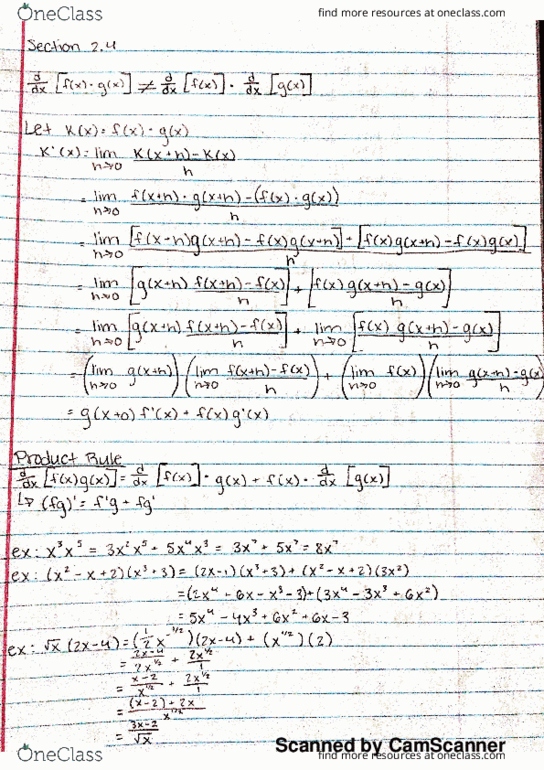 OneClass
find more resources at oneclass.com
Section 2.4
d/dx [f(x)·g(x)] ≠ d/dx [f(x)] · d/dx [g(x)]
Let K(x) = f(x) · g(x)
K'(x) = lim h→0 K(x+h) - K(x) / h
= lim h→0 f(x+h) · g(x+h) - (f(x) · g(x)) / h
= lim h→0 [f(x+h)g(x+h) - f(x)g(x+h)] + [f(x)g(x+h) - f(x)g(x)] / h
= lim h→0 [g(x+h) f(x+h) - f(x) / h] + [f(x) g(x+h) - g(x) / h]
= lim h→0 [g(x+h) f(x+h) - f(x) / h] + lim h→0 [f(x) g(x+h) - g(x) / h]
= (lim h→0 g(x+h)) (lim h→0 f(x+h) - f(x) / h) + (lim h→0 f(x)) (lim h→0 g(x+h) - g(x) / h
= g(x+0) f'(x) + f(x) g'(x)
Product Rule
d/dx [f(x)g(x)] = d/dx [f(x)] · g(x) + f(x) · d/dx [g(x)]
↳ (fg)' = f'g + fg'
ex: x³x⁵ = 3x²x⁵ + 5x⁴x³ = 3x⁷ + 5x⁷ = 8x⁷
ex: (x² - x + 2)(x³ + 3) = (2x-1)(x³+3) + (x² - x + 2)(3x²)
= (2x⁴ + 6x - x³ - 3) + (3x⁴ - 3x³ + 6x²)
= 5x⁴ - 4x³ + 6x² + 6x - 3
ex: √x (2x-4) = (1/2 x^-1/2)(2x-4) + (x^1/2)(2)
= 2x-4 / 2x^1/2 + 2x^1/2 / 1
= x-2 / x^1/2 + 2x^1/2 / 1
= (x-2) + 2x / x^1/2
= 3x-2 / √x
Scanned by CamScanner
OneClass
find more resources at oneclass.com